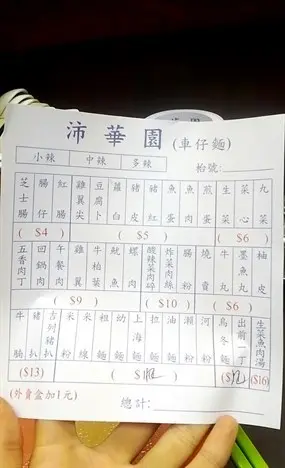 沛華園 (車仔麵)
小辣 中辣 多辣 枱號:
芝士腸 腸仔 紅腸 雞翼尖 豆腐卜 蘿蔔 豬皮 豬紅 魚蛋 魚肉 煎蛋 生菜 菜心 九菜
($4) ($5) ($6)
五香肉丁 回鍋肉 午餐肉 雞翼 牛柏葉 魷魚 螺肉 酸辣菜肉碎 炸菜肉絲 腸粉 燒賣 牛丸 墨魚丸 柚皮
($9) ($10) ($6)
牛腩 豬扒 吉列豬扒 米粉 米線 粗麵 幼麵 上海麵 拉麵 油麵 瀨粉 河粉 烏冬麵 出前一丁 生菜魚肉湯
($13) ($16)
(外賣盒加1元) 總計: